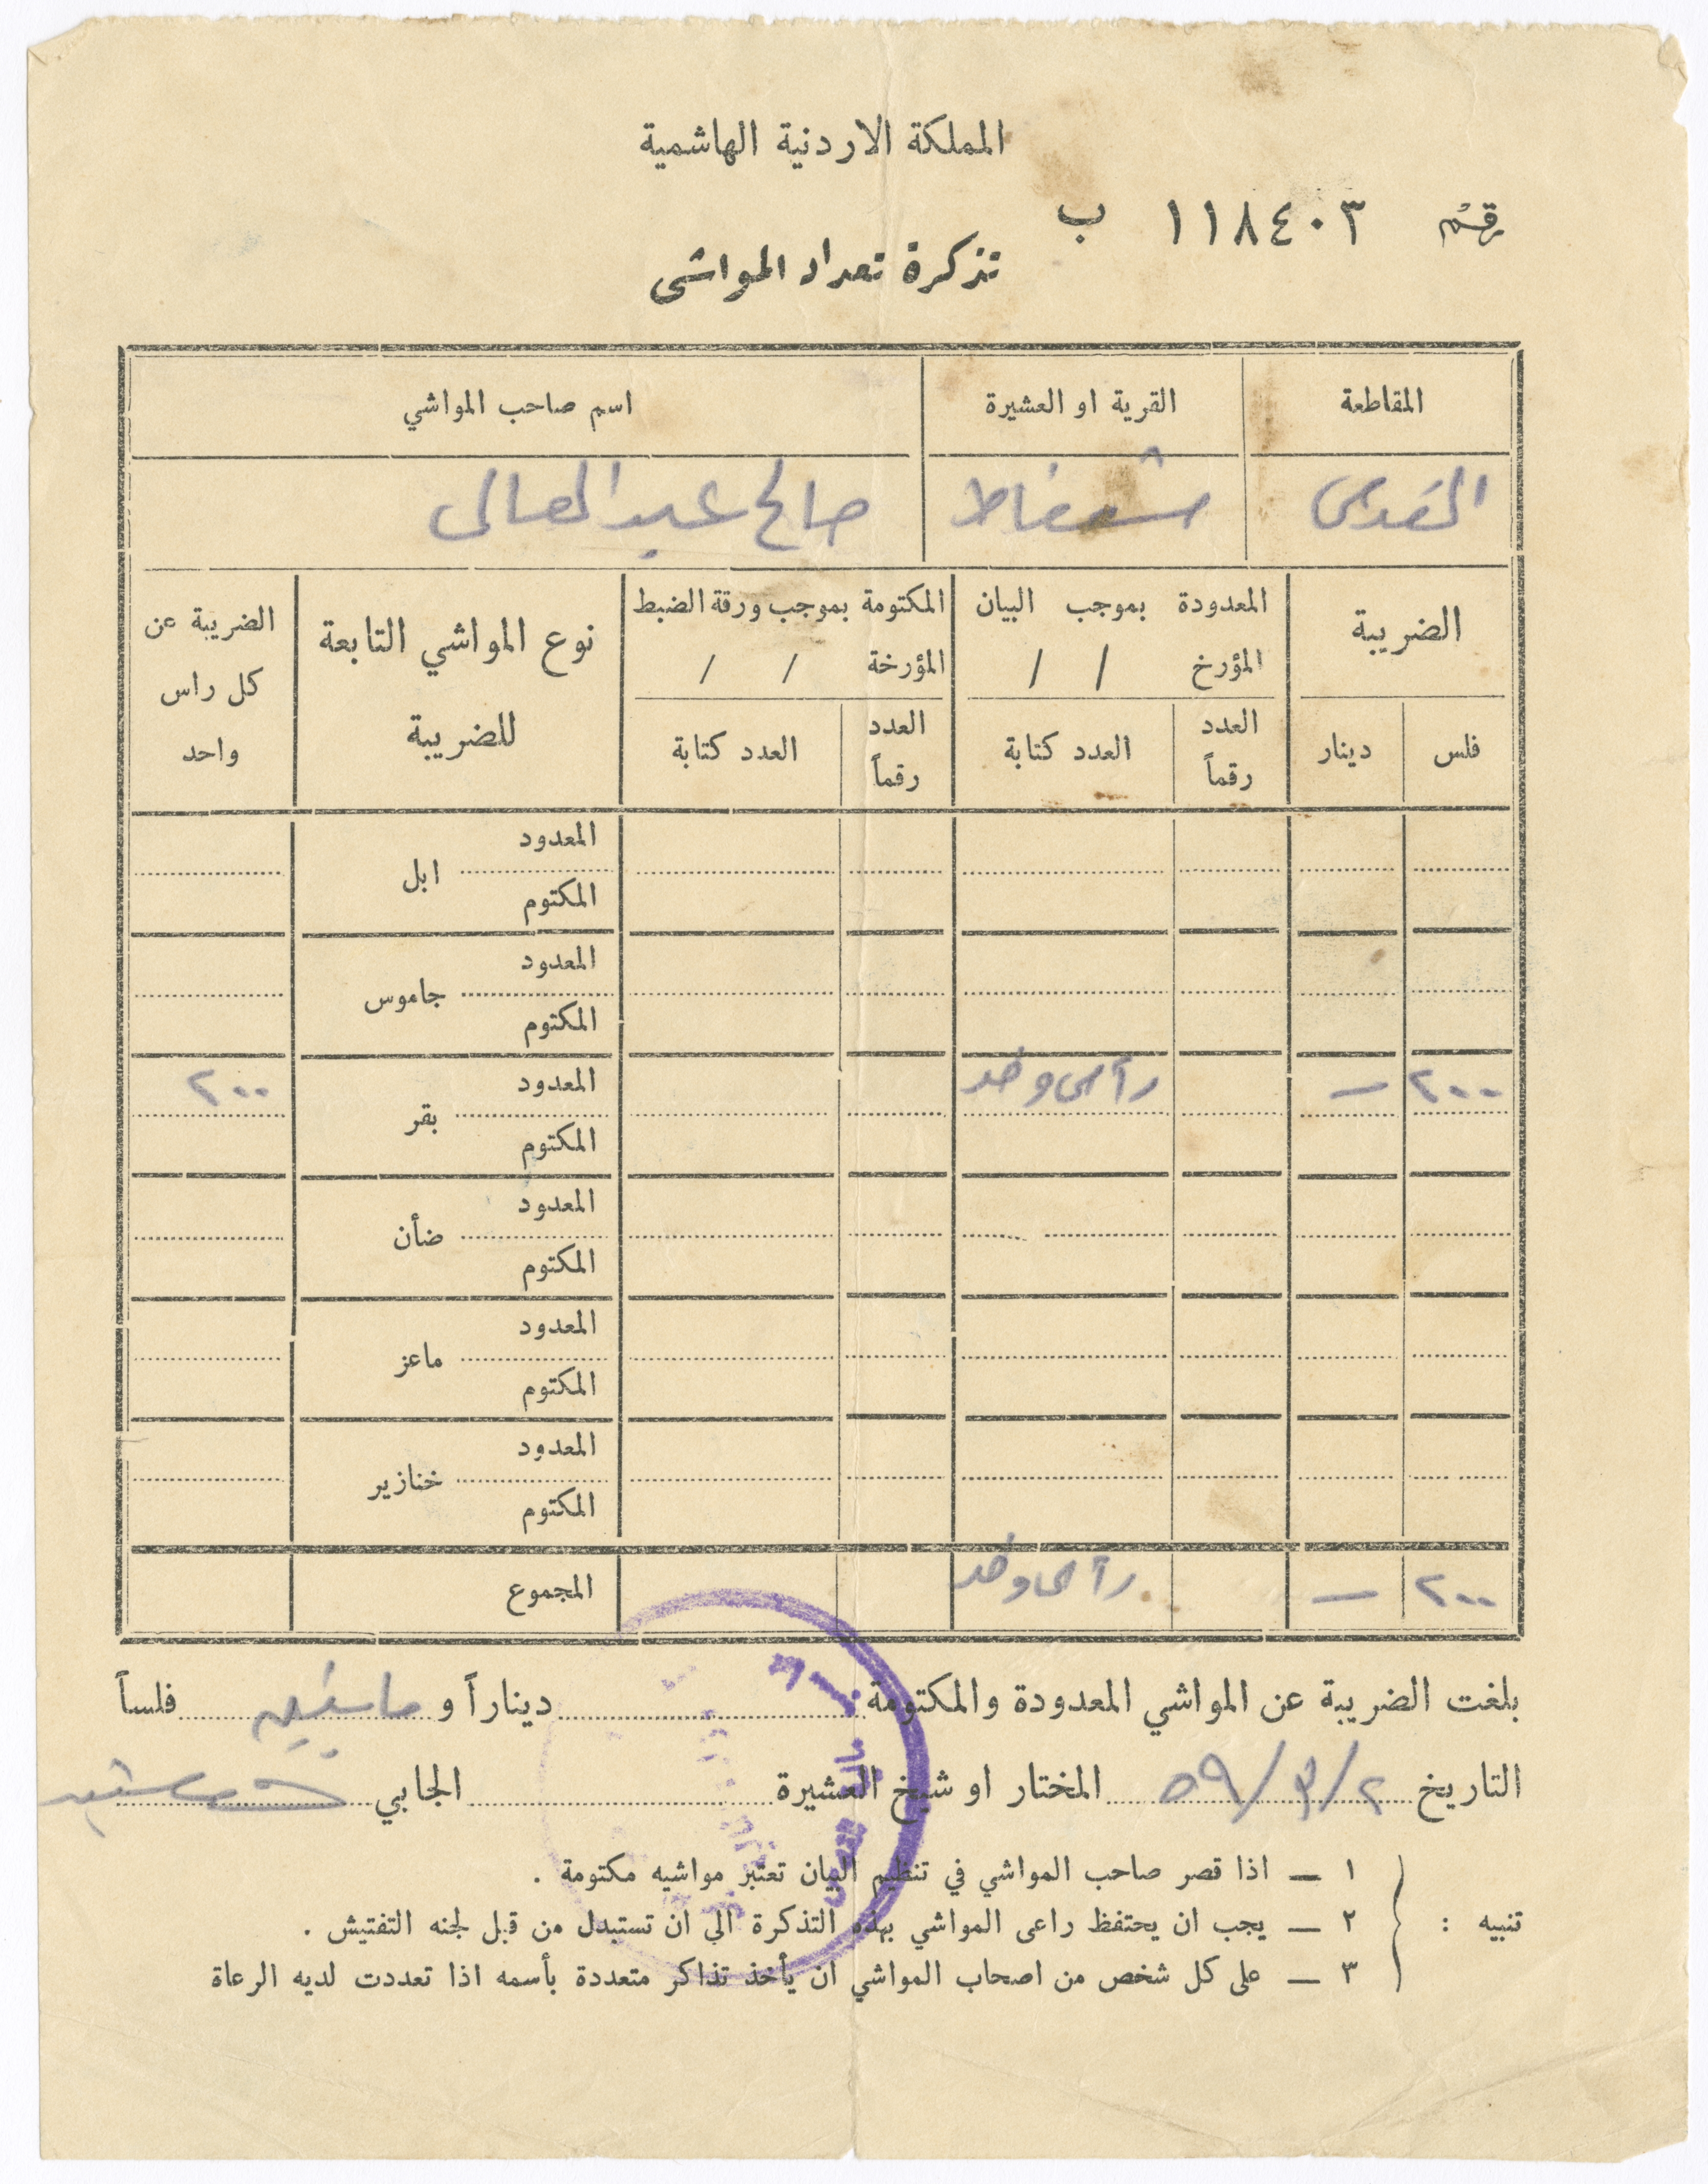 المملكة الاردنية الهاشمية
رقم ١١٨٤٠٣ ب
تذكرة تعداد المواشى
المقاطعة القرية او العشيرة اسم صاحب المواشي
القدس شعفاط صالح عبد المعالى
الضريبة المعدودة بموجب البيان المؤرخ / / المكتومة بموجب ورقة الضبط المؤرخة / / نوع المواشي التابعة للضريبة الضريبة عن كل راس واحد
فلس دينار العدد رقماً العدد كتابة العدد رقماً العدد كتابة
المعدود
ابل
المكتوم
المعدود
جاموس
المكتوم
٢٠٠ — رأس واحد المعدود ٢٠٠
بقر
المكتوم
المعدود
ضأن
المكتوم
المعدود
ماعز
المكتوم
المعدود
خنازير
المكتوم
٢٠٠ — رأس واحد المجموع
بلغت الضريبة عن المواشي المعدودة والمكتومة ديناراً و مايتين فلساً
التاريخ ٢/٣/٥٩ المختار او شيخ العشيرة الجابي
تنبيه :
١ — اذا قصر صاحب المواشي في تنظيم البيان تعتبر مواشيه مكتومة .
٢ — يجب ان يحتفظ راعى المواشي بهذه التذكرة الي ان تستبدل من قبل لجنه التفتيش .
٣ — على كل شخص من اصحاب المواشي ان يأخذ تذاكر متعددة بأسمه اذا تعددت لديه الرعاة